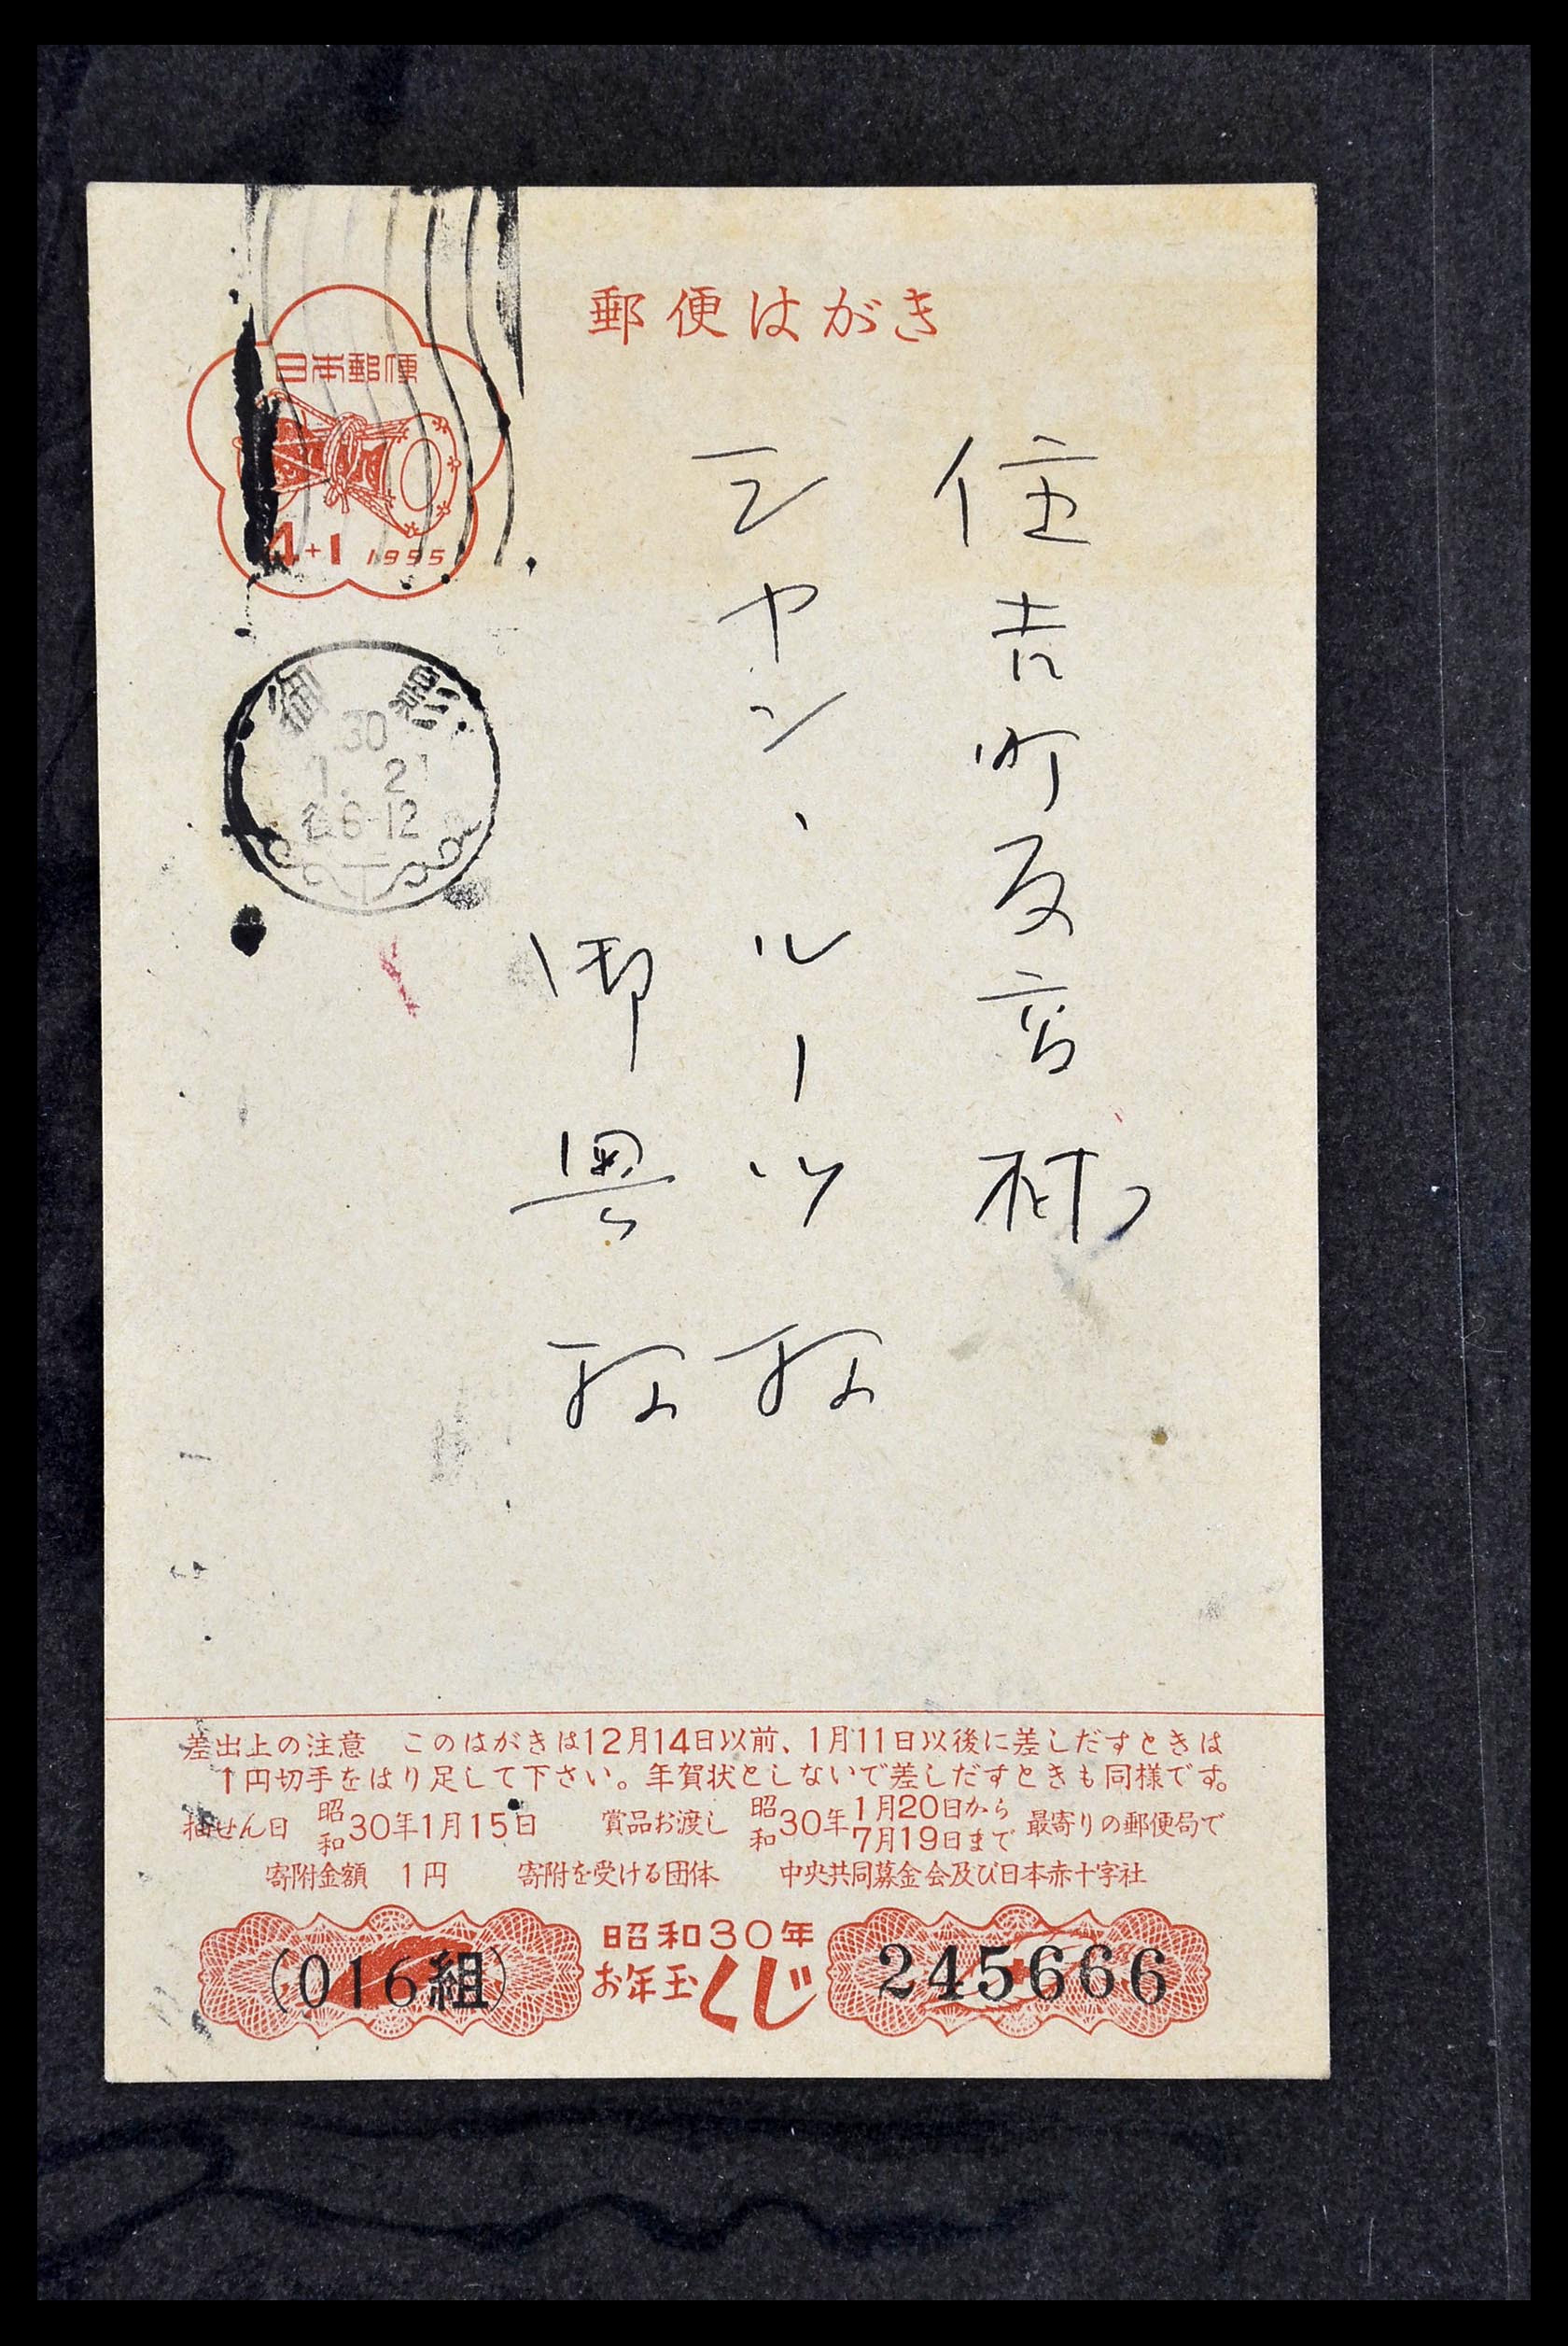 郵便はがき
日本郵便
4+1 1955
御影
30
1. 21
後6-12
住吉町反高林
シヤン、ルーツ 様
御奥 様
差出上の注意 このはがきは12月14日以前、1月11日以後に差しだすときは
1円切手をはり足して下さい。年賀状としないで差しだすときも同様です。
抽せん日 昭和30年1月15日 賞品お渡し 昭和30年1月20日から7月19日まで 最寄りの郵便局で
寄附金額 1円 寄附を受ける団体 中央共同募金会及び日本赤十字社
(016組) 昭和30年お年玉くじ 245666